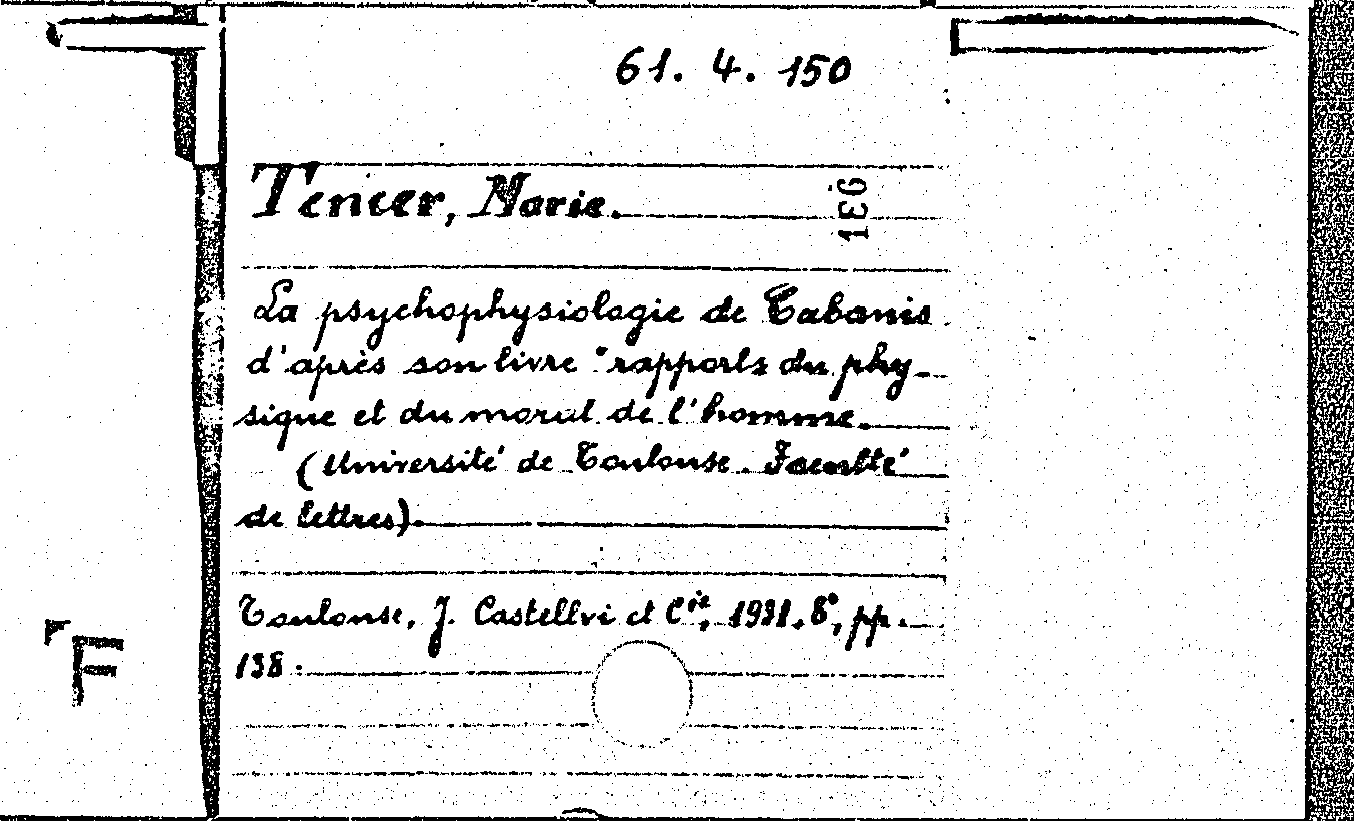 61. 4. 150
Tencer, Marie.
136
La psychophysiologie de Cabanis
d'après son livre "rapports du phy-
sique et du moral de l'homme.
(Université de Toulouse. Faculté
de lettres).
Toulouse, J. Castellvi et Cie, 1931. 8°, pp.
138.
F